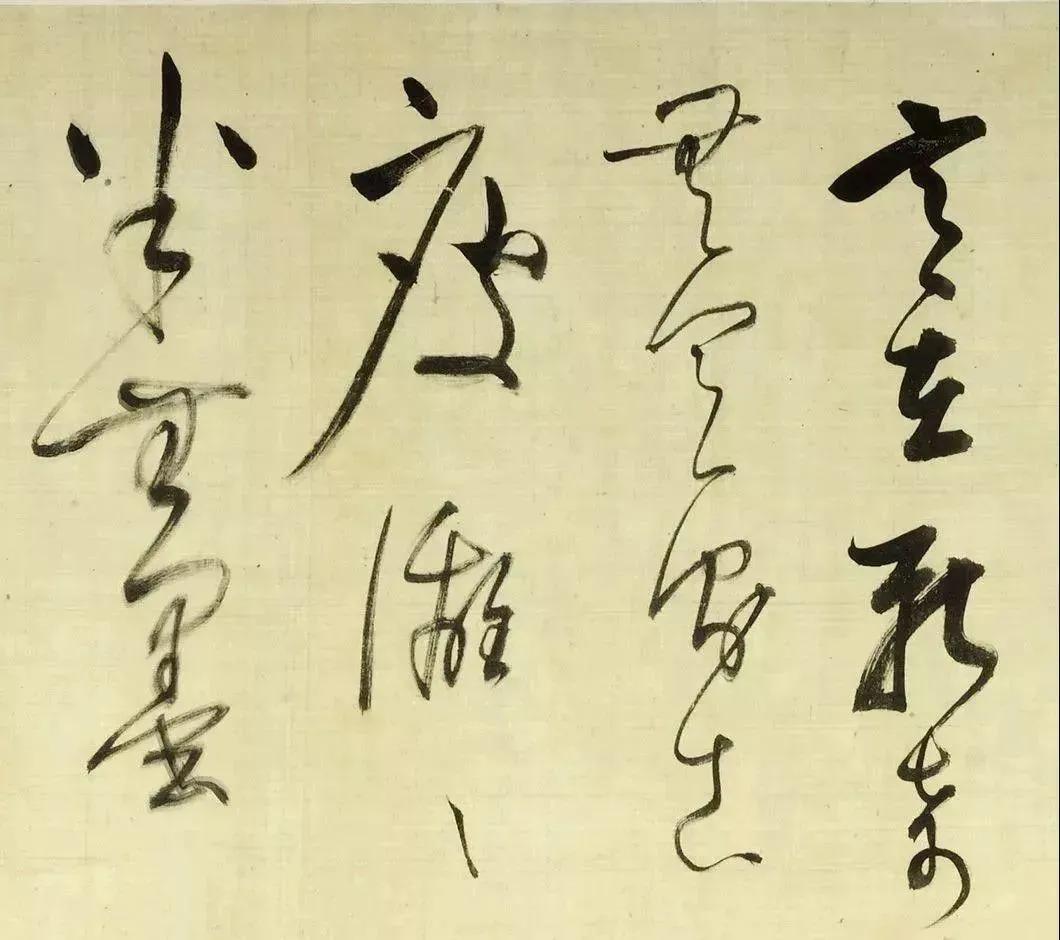 在新奇
無定則古
瘦灕〻
半無墨